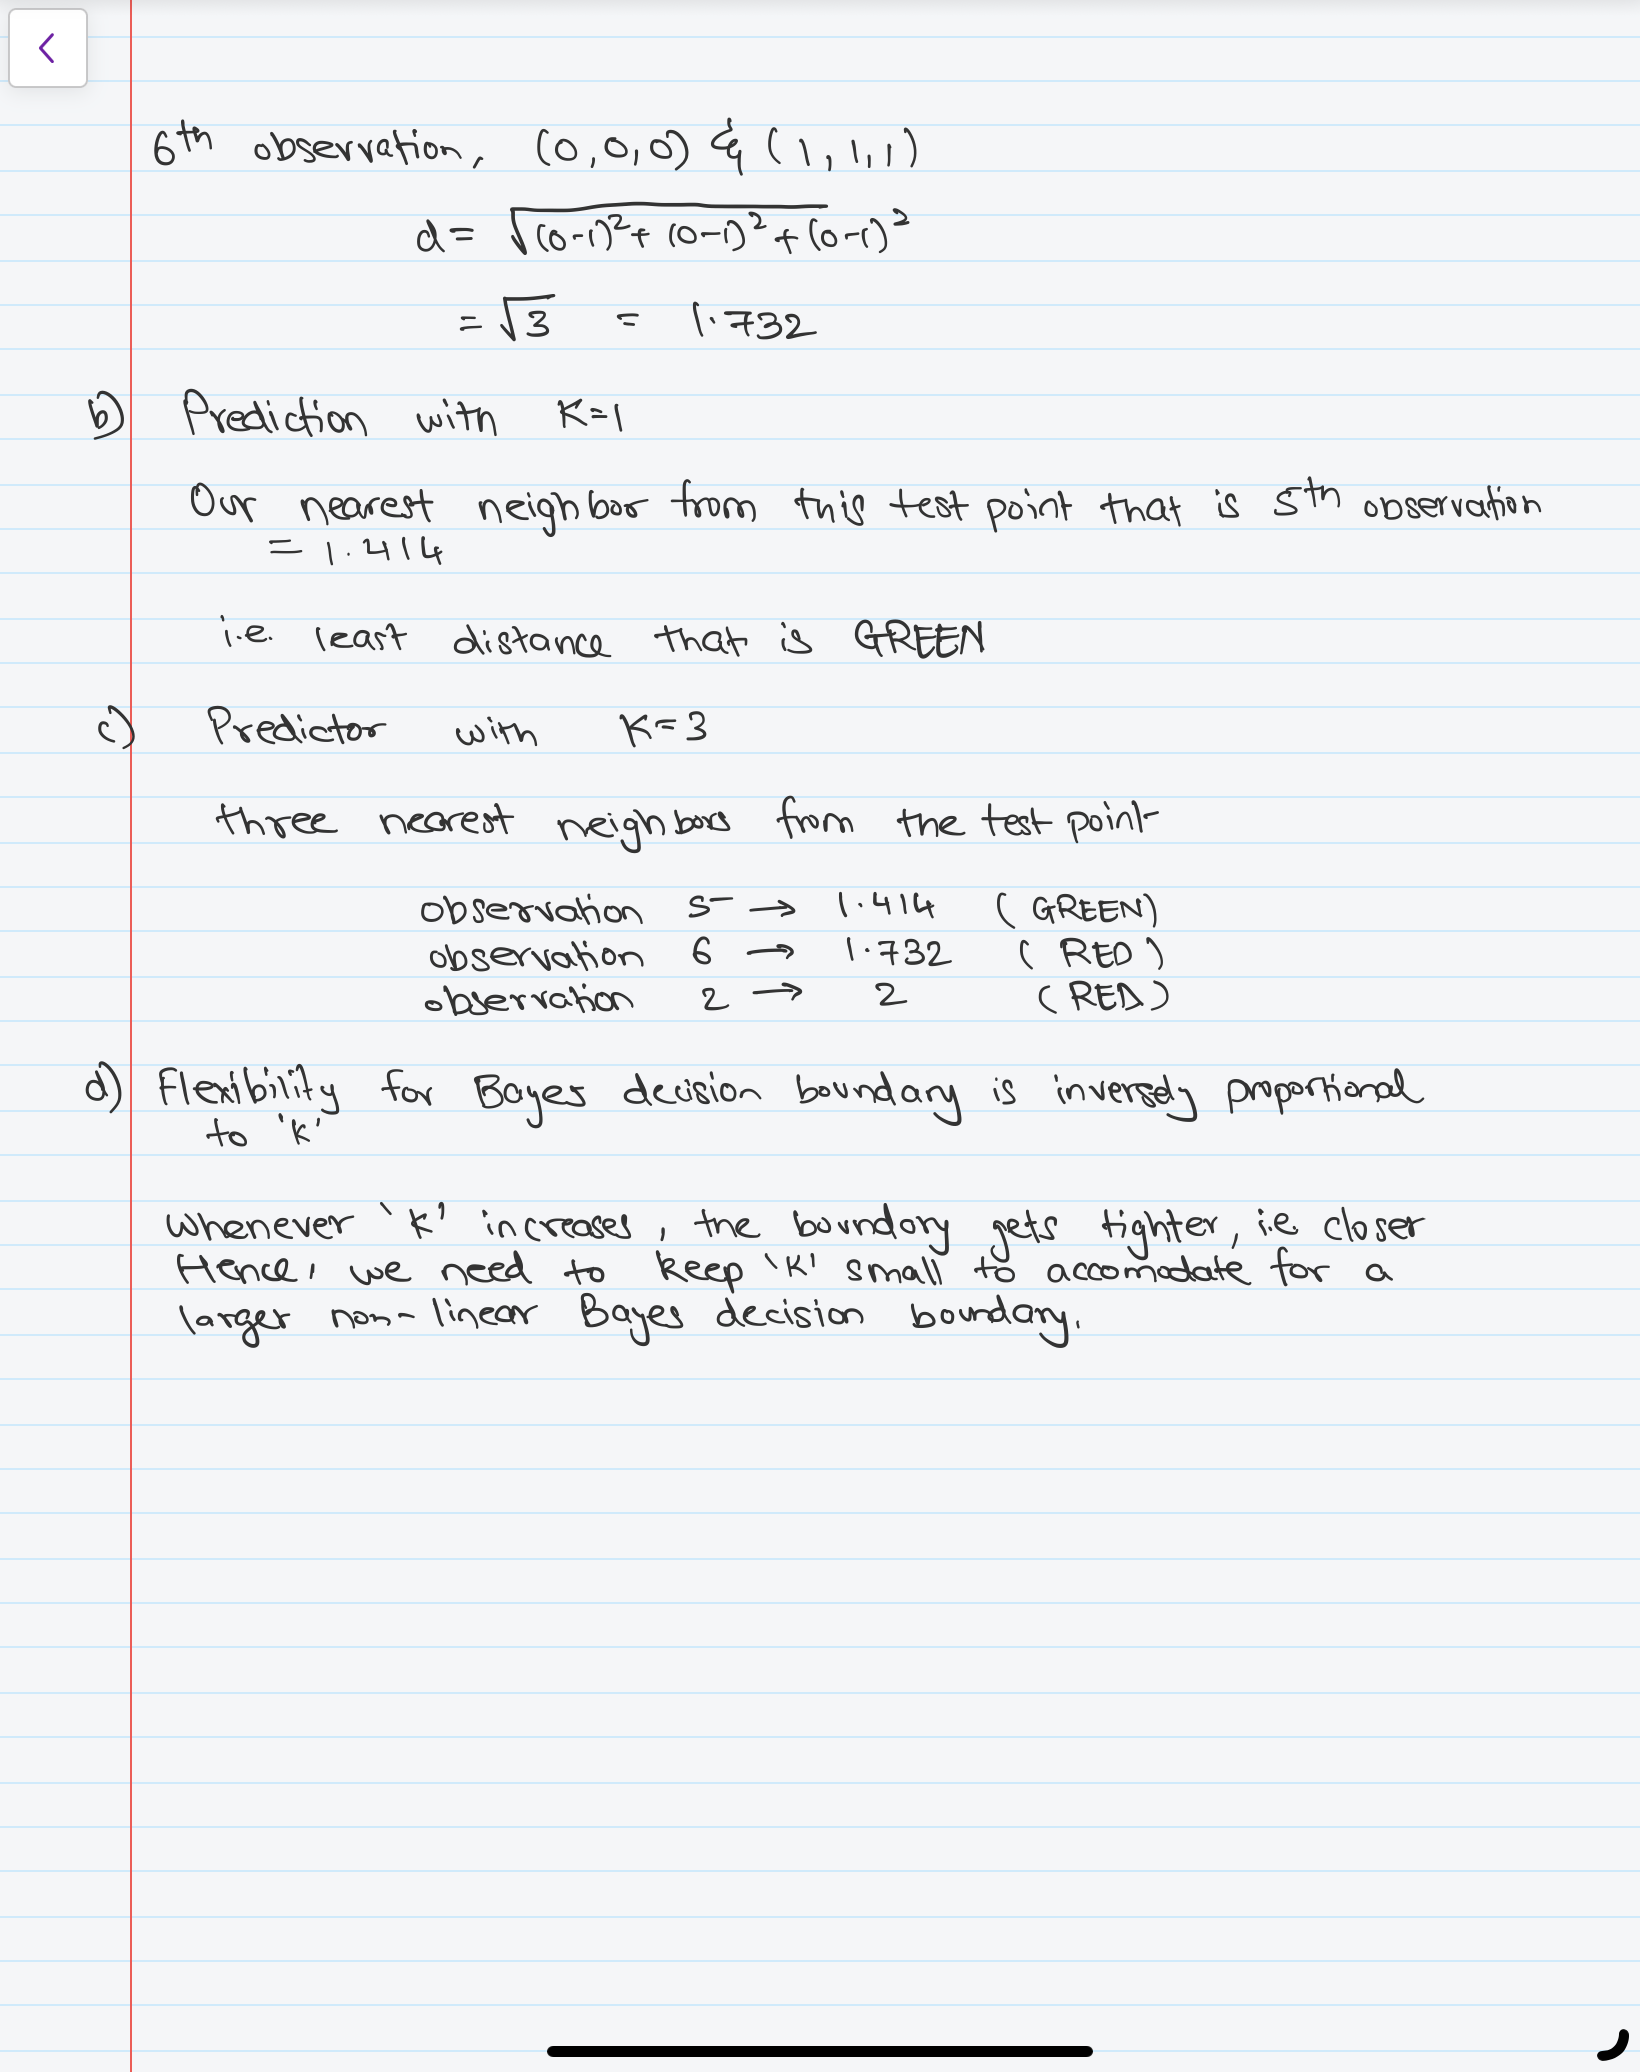 6th observation, (0,0,0) & (1,1,1)
d = √(0-1)² + (0-1)² + (0-1)²
= √3 = 1.732
b) Prediction with K=1
Our nearest neighbor from this test point that is 5th observation
= 1.414
i.e. least distance that is GREEN
c) Predictor with K=3
three nearest neighbors from the test point
observation 5 → 1.414 (GREEN)
observation 6 → 1.732 (RED)
observation 2 → 2 (RED)
d) Flexibility for Bayes decision boundary is inversely proportional
to 'K'
whenever 'K' increases, the boundary gets tighter, i.e closer
Hence, we need to keep 'K' small to accomodate for a
larger non-linear Bayes decision boundary.